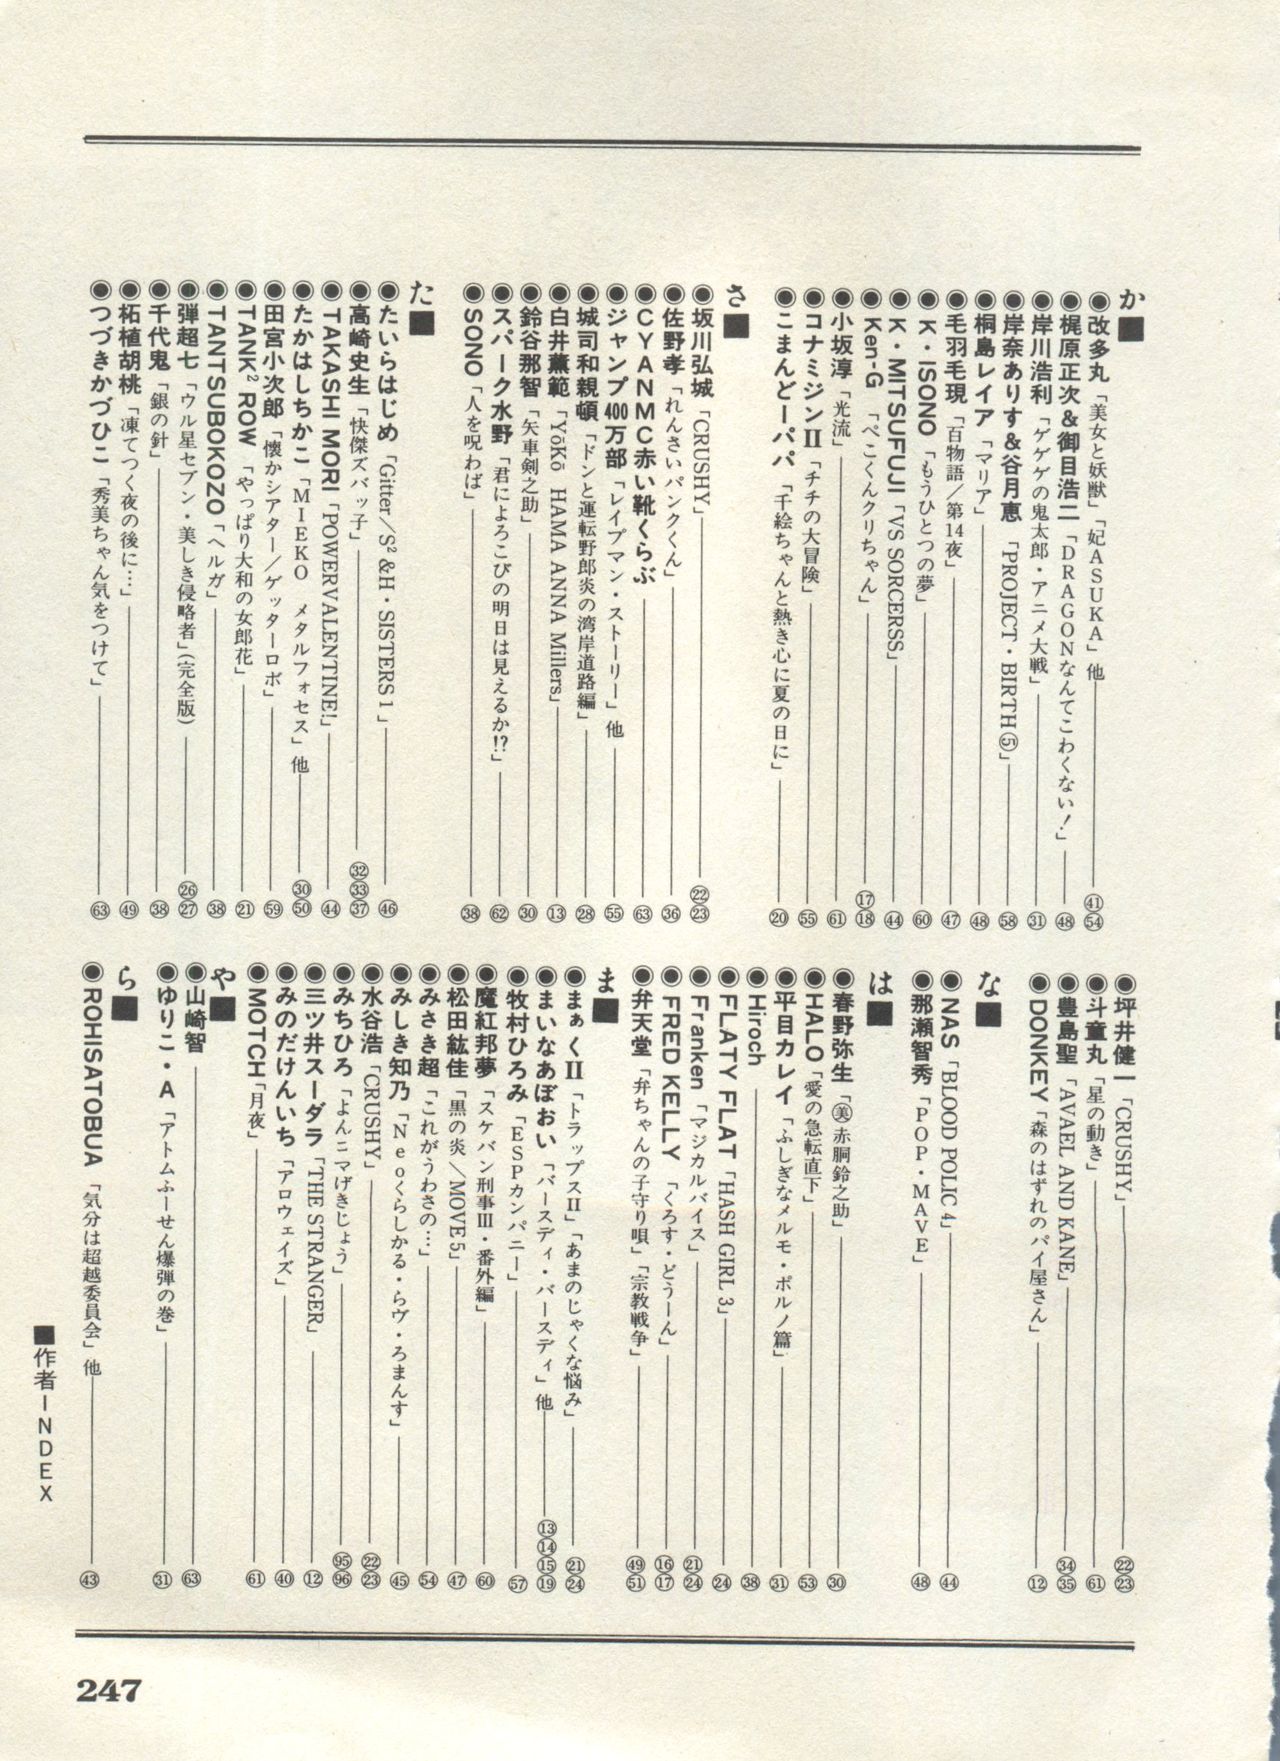 か■
◉改多丸「美女と妖獣」「妃ASUKA」他 ㊶ 54
◉梶原正次&御目浩二「DRAGONなんてこわくない!」 ㊽
◉岸川浩利「ゲゲゲの鬼太郎・アニメ大戦」 ㉛
◉岸奈ありす&谷月恵「PROJECT・BIRTH⑤」 58
◉桐島レイア「マリア」 ㊽
◉毛羽毛現「百物語/第14夜」 ㊼
◉K・ISONO「もうひとつの夢」 60
◉K・MITSUFUJI「VS SORCERSS」 ㊹
◉Ken-G「ぺこくんクリちゃん」 ⑰⑱
◉小坂淳「光流」 61
◉コナミジンII「チチの大冒険」 55
◉こまんどーパパ「千絵ちゃんと熱き心に夏の日に」 ⑳
さ■
◉坂川弘城「CRUSHY」 ㉒㉓
◉佐野孝「れんさいパンクくん」 ㊱
◉CYANMC赤い靴くらぶ 63
◉ジャンプ400万部「レイプマン・ストーリー」他 55
◉城司和親頓「ドンと運転野郎炎の湾岸道路編」 ㉘
◉白井薫範「YōKō HAMA ANNA Millers」 ⑬
◉鈴谷那智「矢車剣之助」 ㉚
◉スパーク水野「君によろこびの明日は見えるか!?」 62
◉SONO「人を呪わば」 ㊳
た■
◉たいらはじめ「Gitter/S²&H・SISTERS 1」 ㊻
◉高崎史生「快傑ズバッ子」 ㉜㉝㊲
◉TAKASHI MORI「POWERVALENTINE!」 ㊹
◉たかはしちかこ「MIEKO メタルフォセス」他 ㉚㊿
◉田宮小次郎「懐かシアター/ゲッターロボ」 59
◉TANK² ROW「やっぱり大和の女郎花」 ㉑
◉TANTSUBOKOZO「ヘルガ」 ㊳
◉弾超七「ウル星セブン・美しき侵略者」(完全版) ㉖㉗
◉千代鬼「銀の針」 ㊳
◉柘植胡桃「凍てつく夜の後に…」 ㊾
◉つづきかづひこ「秀美ちゃん気をつけて」 63
◉坪井健一「CRUSHY」 ㉒㉓
◉斗童丸「星の動き」 61
◉豊島聖「AVAEL AND KANE」 ㉞㉟
◉DONKEY「森のはずれのパイ屋さん」 ⑫
な■
◉NAS「BLOOD POLIC 4」 ㊹
◉那瀬智秀「POP・MAVE」 ㊽
は■
◉春野弥生「(美)赤胴鈴之助」 ㉚
◉HALO「愛の急転直下」 53
◉平目カレイ「ふしぎなメルモ・ポルノ篇」 ㉛
◉Hiroch ㊳
◉FLATY FLAT「HASH GIRL 3」 ㉔
◉Franken「マジカルバイス」 ㉑㉔
◉FRED KELLY「くろす・どうーん」 ⑯⑰
◉弁天堂「弁ちゃんの子守り唄」「宗教戦争」 ㊾ 51
ま■
◉まぁくII「トラップスII」「あまのじゃくな悩み」 ㉑㉔
◉まいなあぼおい「バースディ・バースディ」他 ⑬⑭⑮⑲
◉牧村ひろみ「ESPカンパニー」 57
◉魔紅邦夢「スケバン刑事III・番外編」 60
◉松田紘佳「黒の炎/MOVE5」 ㊼
◉みさき超「これがうわさの…」 54
◉みしき知乃「Neoくらしかる・らヴ・ろまんす」 ㊺
◉水谷浩「CRUSHY」 ㉒㉓
◉みちひろ「よんニマげきじょう」 95 96
◉三ツ井スーダラ「THE STRANGER」 ⑫
◉みのだけんいち「アロウェイズ」 ㊵
◉MOTCH「月夜」 61
や■
◉山崎智 63
◉ゆりこ・A「アトムふーせん爆弾の巻」 ㉛
ら■
◉ROHISATOBUA「気分は超越委員会」他 ㊸
■作者-INDEX
247